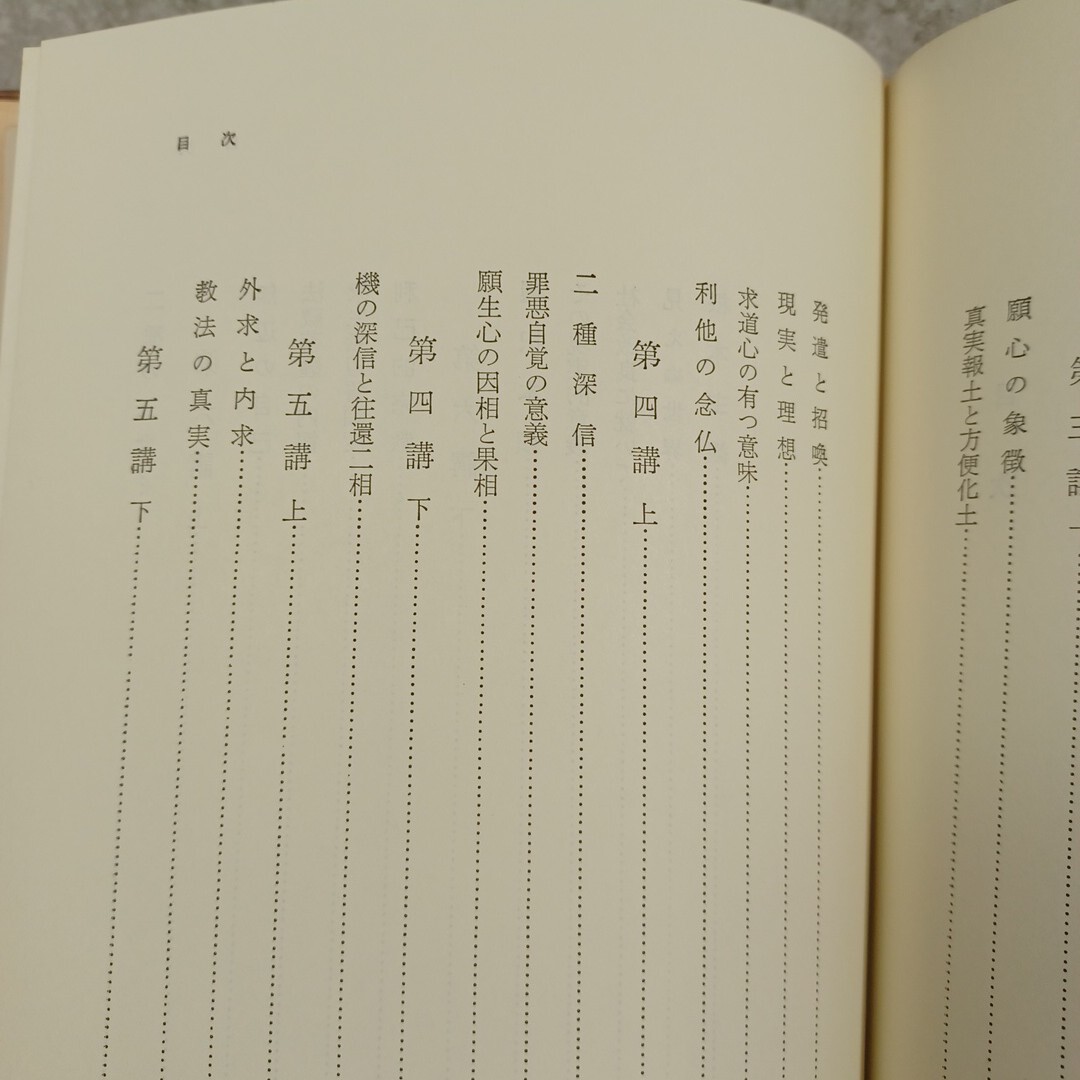 第三講
願心の象徴
真実報土と方便化土
目次
発遣と招喚
現実と理想
求道心の有つ意味
利他の念仏
第四講 上
二種深信
罪悪自覚の意義
願生心の因相と果相
第四講 下
機の深信と往還二相
第五講 上
外求と内求
教法の真実
第五講 下